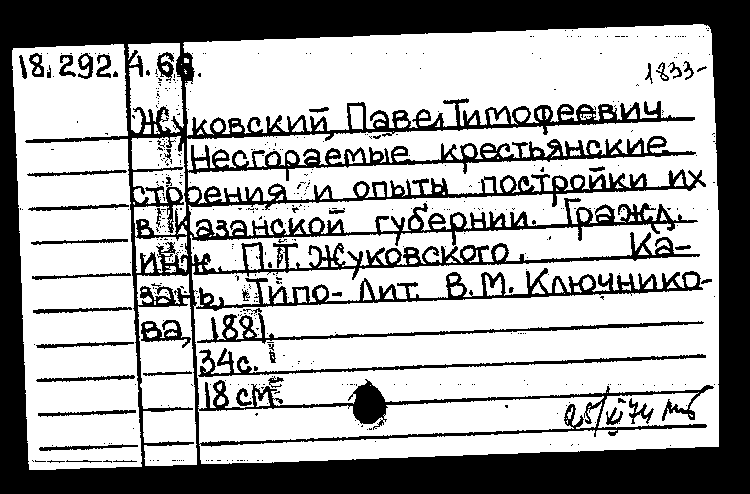 18.292.4.66.
1833-
Жуковский, Павел Тимофеевич.
Несгораемые крестьянские
строения и опыты постройки их
в Казанской губернии. Гражд.
инж. П.Т. Жуковского. Ка-
зань, Типо-Лит. В.М. Ключнико-
ва, 1881.
34с.
18 см.
25/XI 74